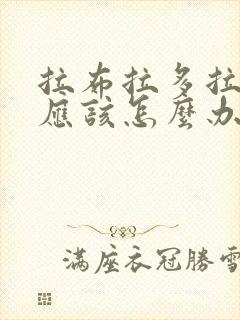 拉布拉多拉
應該怎麼办
滿座衣冠勝雪